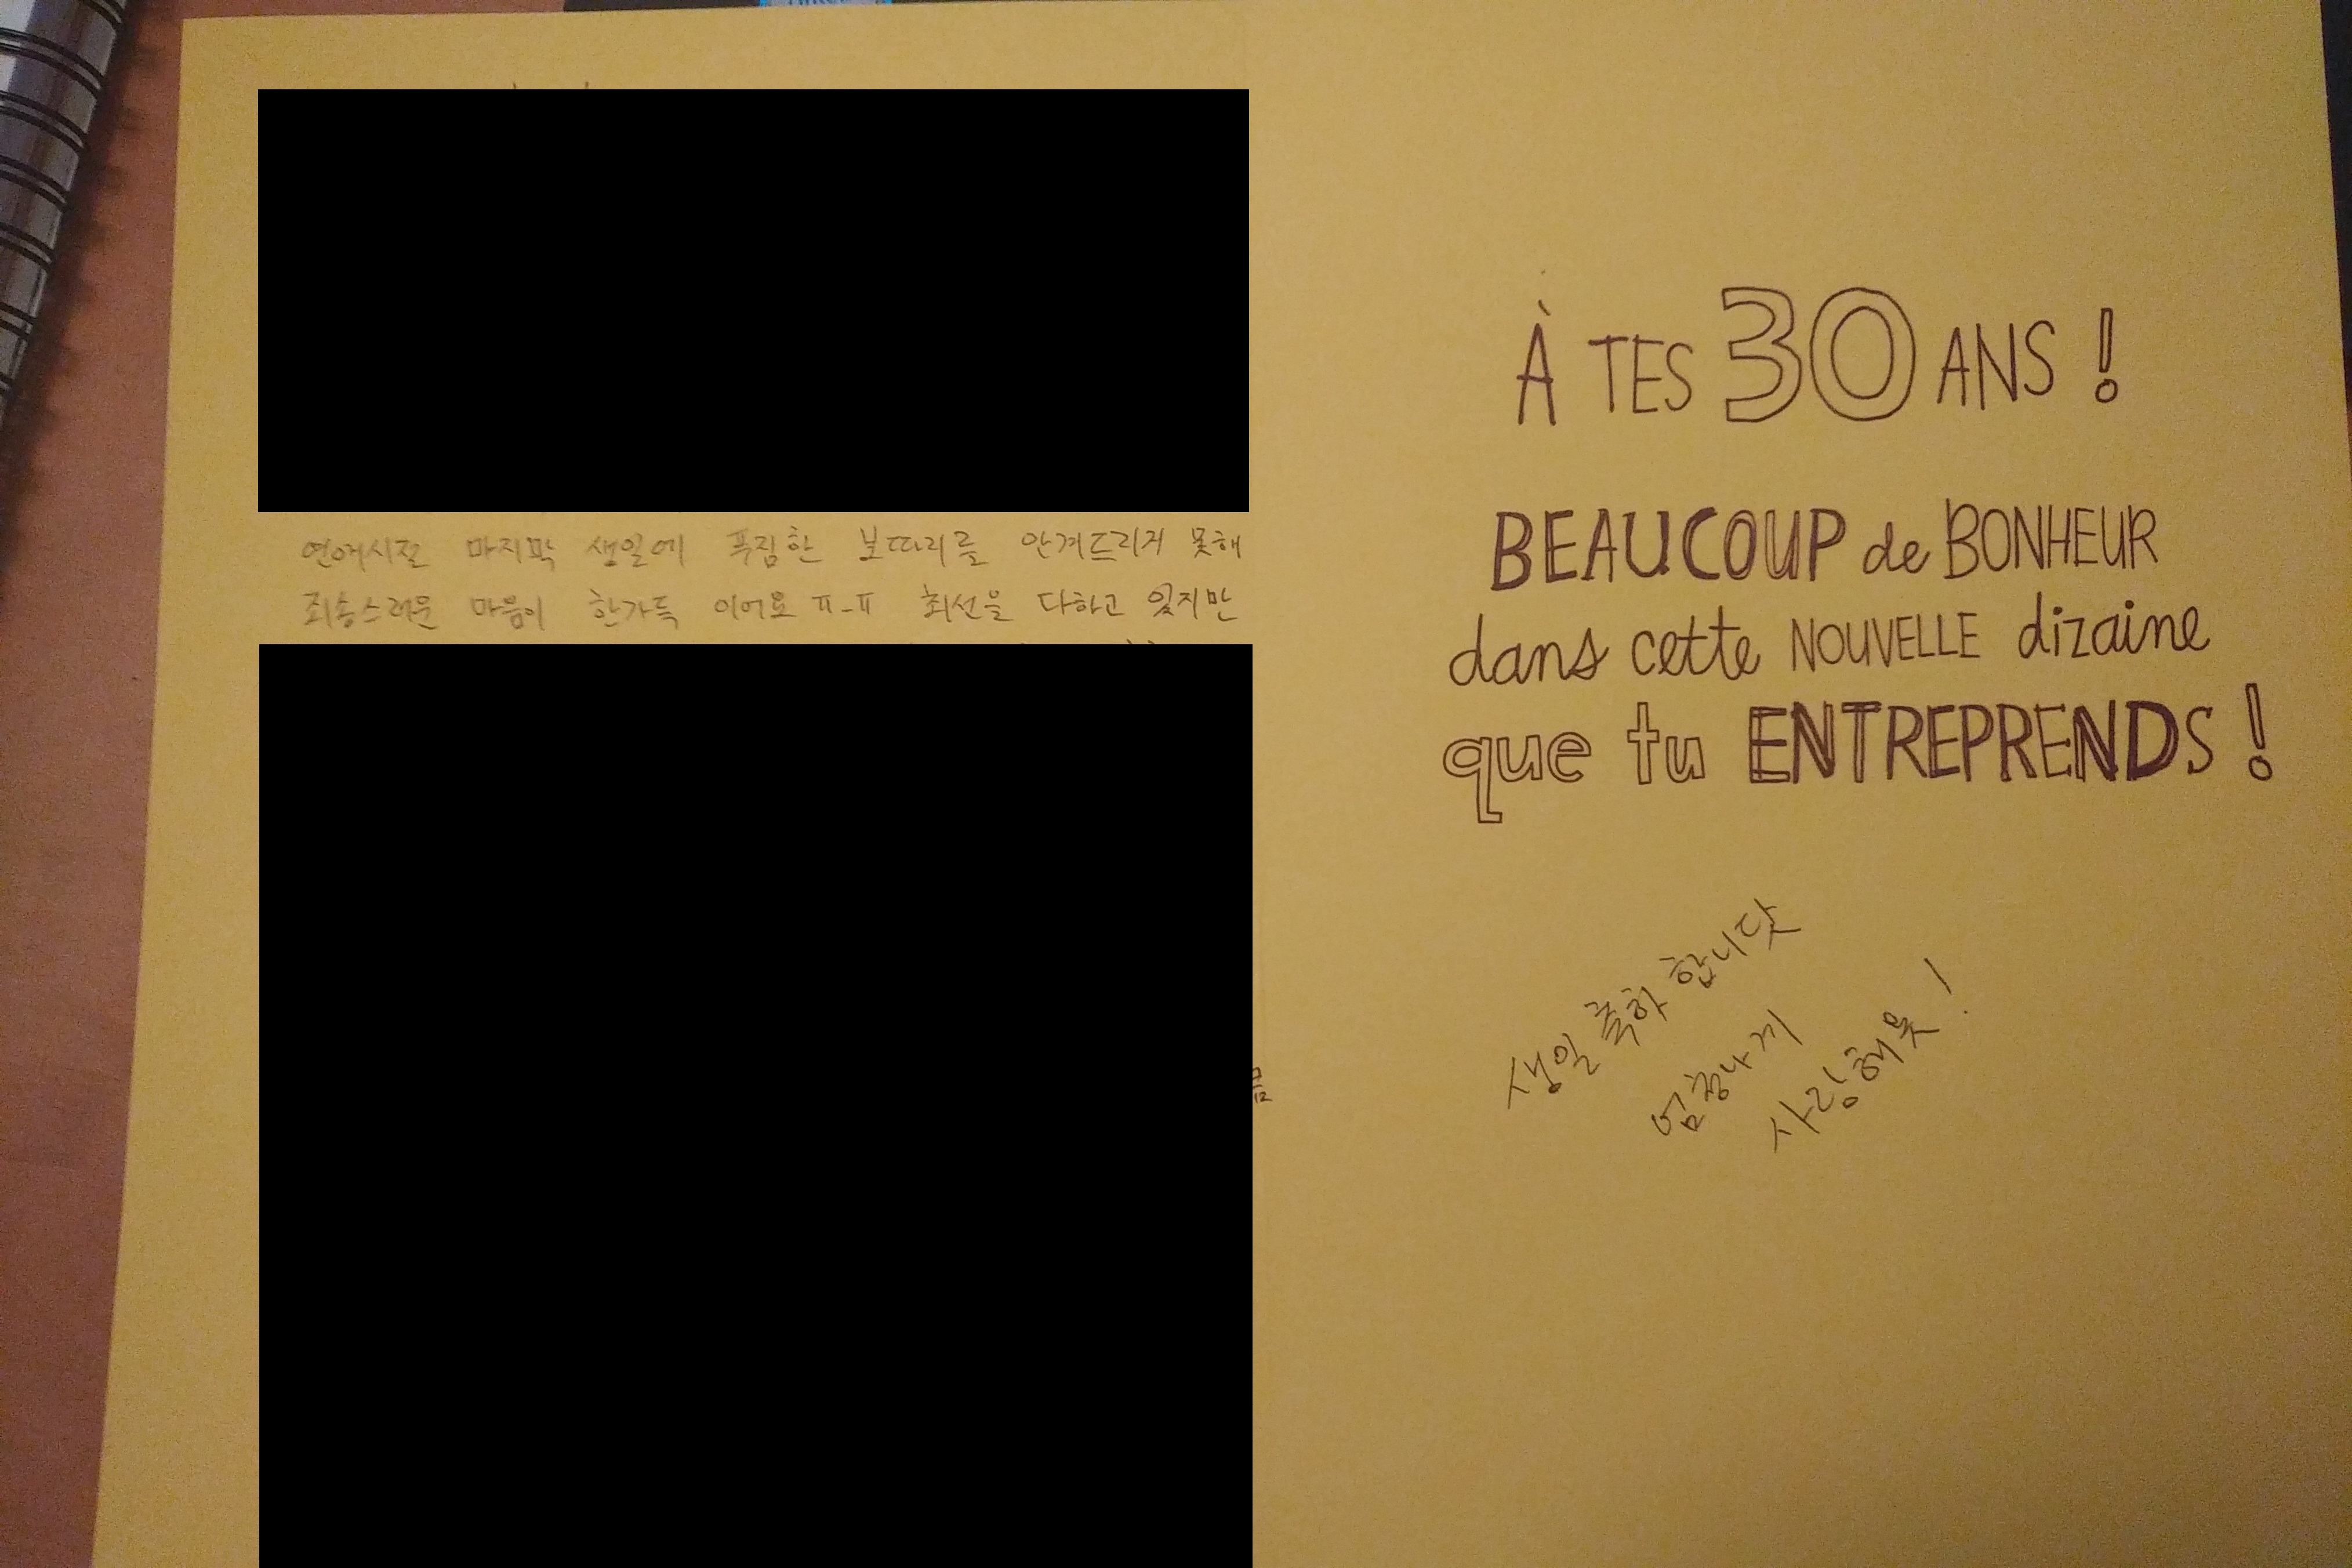 연애시절 마지막 생일에 푸짐한 보따리를 안겨드리지 못해
죄송스러운 마음이 한가득 이어요 ㅠ-ㅠ 최선을 다하고 있지만
À TES 30 ANS !
BEAUCOUP de BONHEUR
dans cette NOUVELLE dizaine
que tu ENTREPRENDS !
생일 축하 합니닷
엄청나게
사랑해욧 !